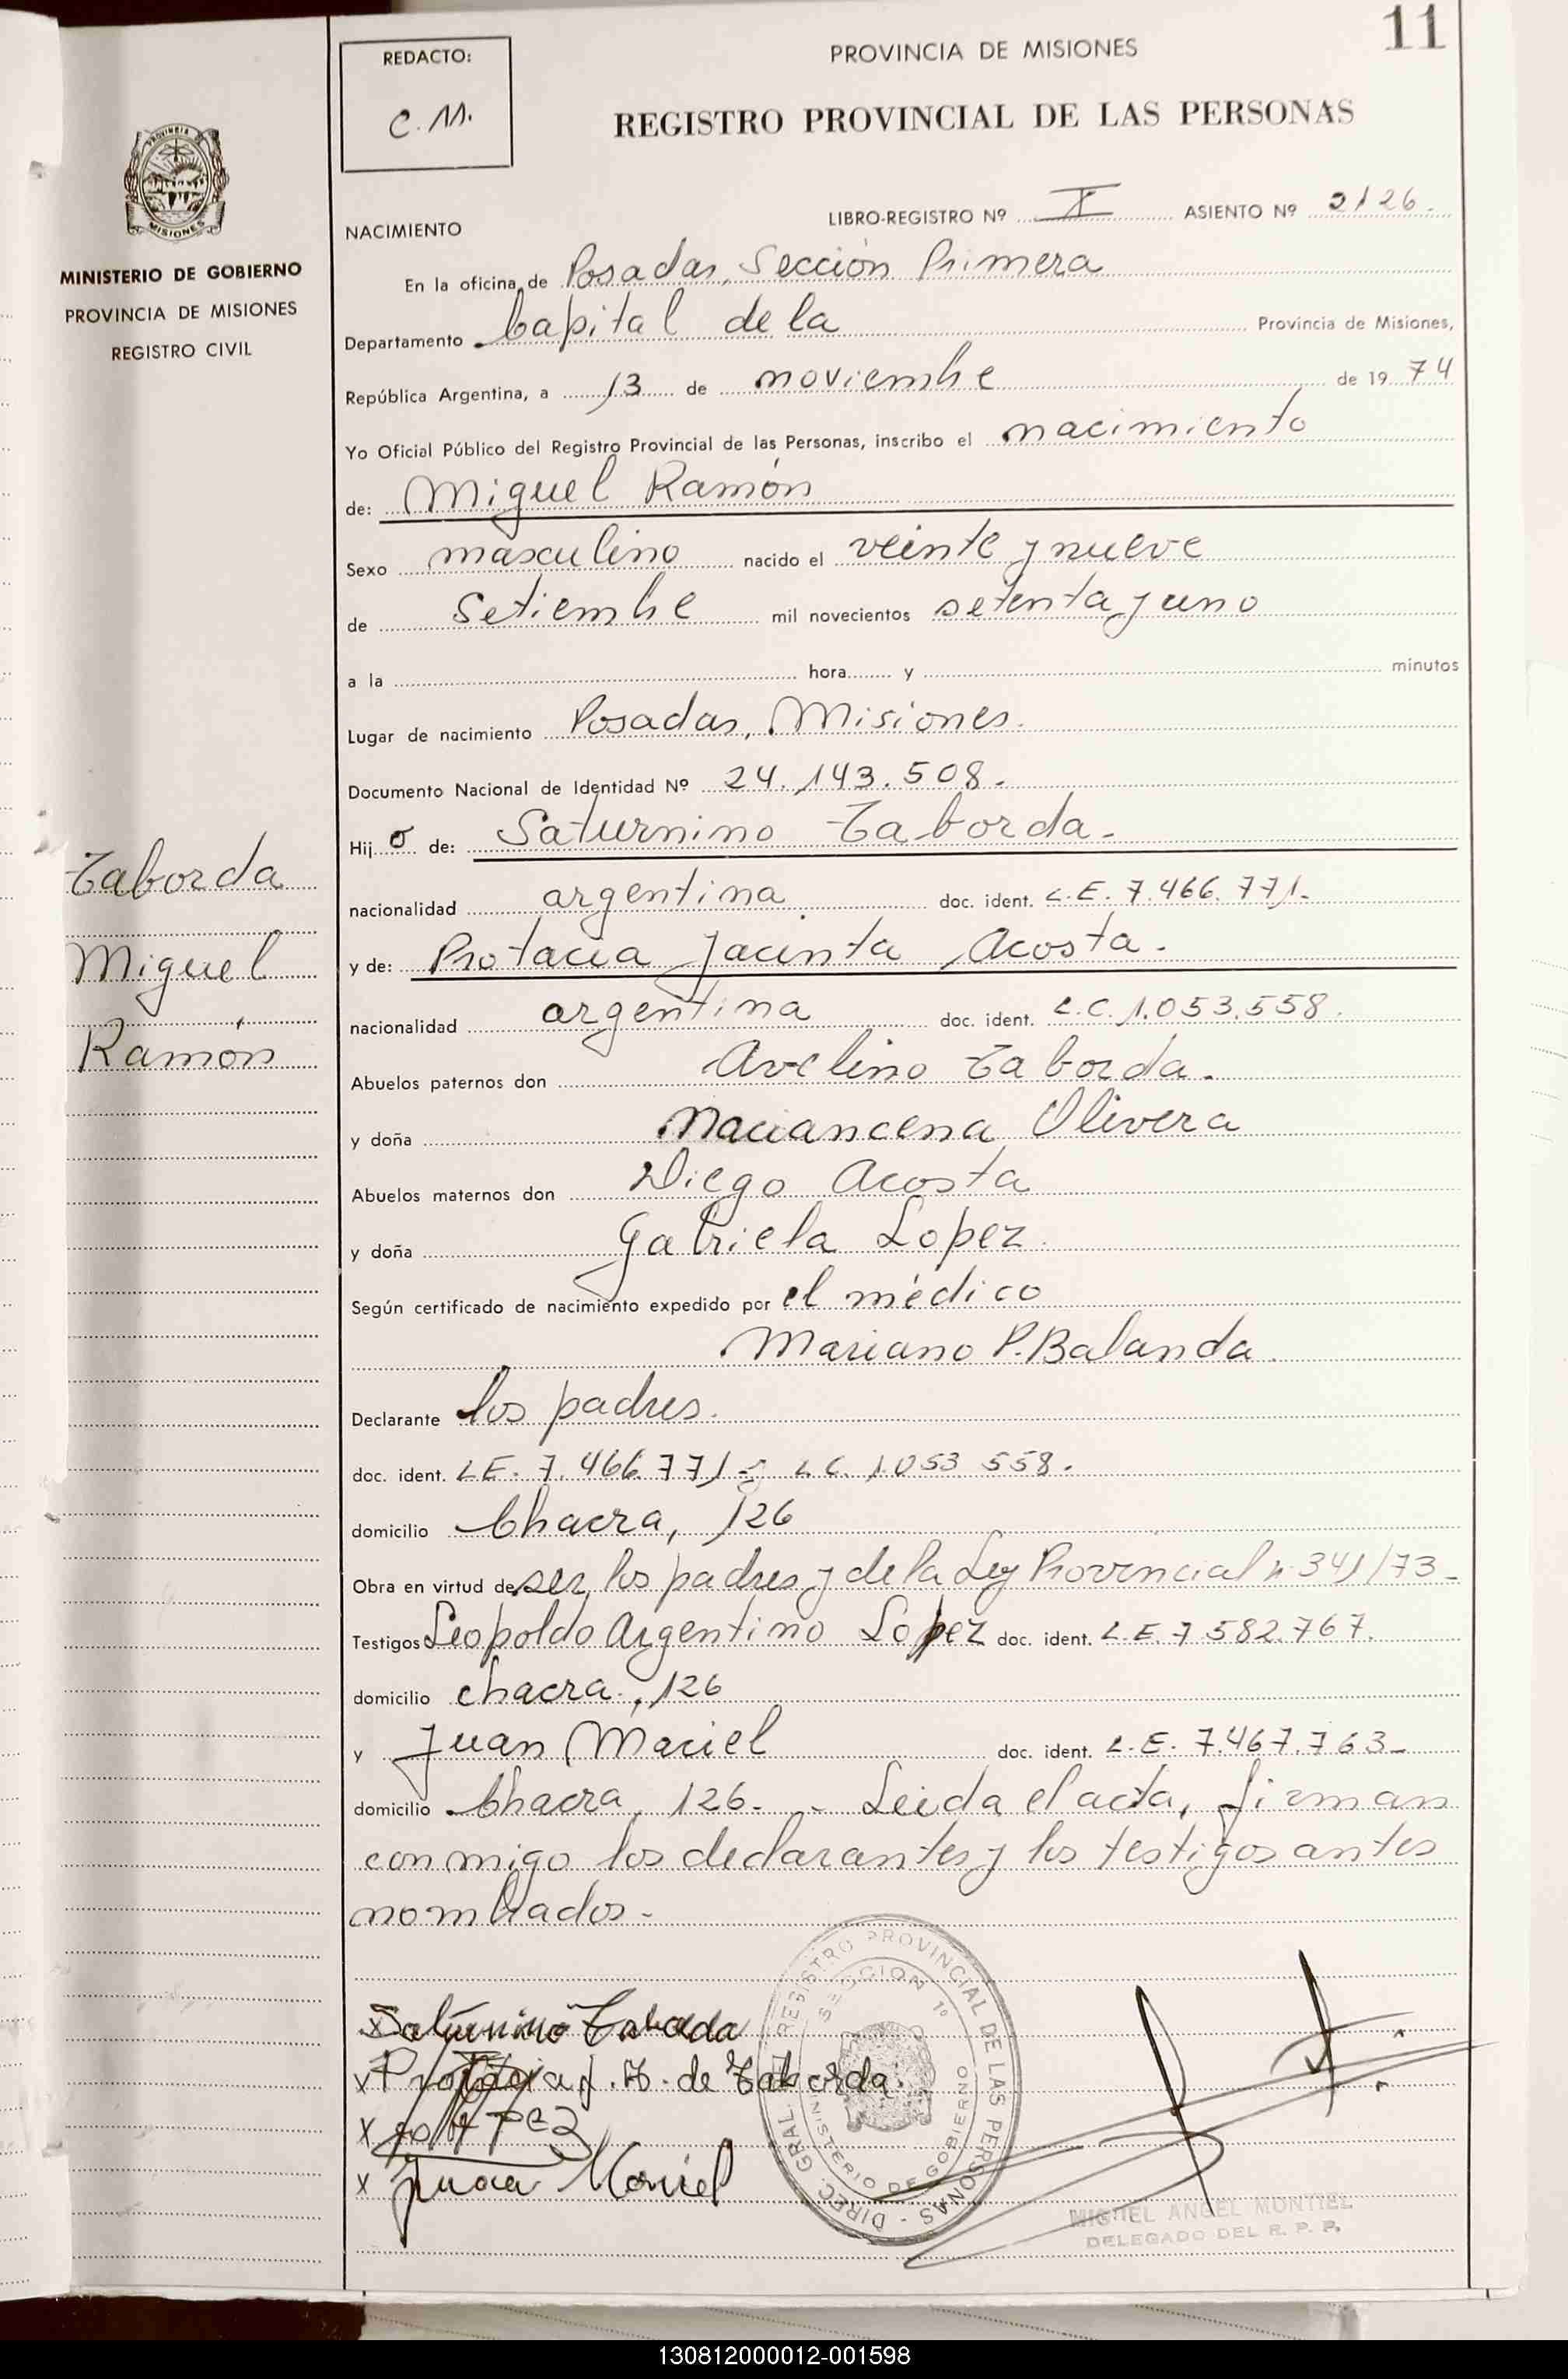 11
REDACTO:
C. M.
PROVINCIA DE MISIONES
REGISTRO PROVINCIAL DE LAS PERSONAS
PROVINCIA
MISIONES
MINISTERIO DE GOBIERNO
PROVINCIA DE MISIONES
REGISTRO CIVIL
LIBRO-REGISTRO Nº I ASIENTO Nº 2126.
NACIMIENTO
En la oficina de Posadas, Sección Primera
Departamento Capital de la Provincia de Misiones,
República Argentina, a 13 de noviembre de 1974
Yo Oficial Público del Registro Provincial de las Personas, inscribo el nacimiento
de: Miguel Ramón
Sexo masculino nacido el veinte y nueve
de Setiembre mil novecientos setenta y uno
a la hora y minutos
Lugar de nacimiento Posadas, Misiones.
Documento Nacional de Identidad Nº 24.143.508.
Hijo de: Saturnino Taborda.
nacionalidad argentina doc. ident. L.E. 7.466.771.
y de: Protacia Jacinta Acosta.
nacionalidad argentina doc. ident. L.C. 1.053.558.
Abuelos paternos don Avelino Taborda.
y doña Maciancena Olivera
Abuelos maternos don Diego Acosta
y doña Gabriela Lopez
Según certificado de nacimiento expedido por el médico
Mariano P. Balanda.
Declarante los padres.
doc. ident. L.E. 7.466.771 - y L.C. 1.053 558.
domicilio Chacra, 126
Obra en virtud de ser los padres y de la Ley Provincial n. 341/73-
Testigos Leopoldo Argentino Lopez doc. ident. L.E. 7 582.767.
domicilio chacra, 126
y Juan Maciel doc. ident. L.E. 7.467.763-
domicilio Chacra, 126. - Leida el acta, firman
conmigo los declarantes y los testigos antes
nombrados.-
Taborda
Miguel
Ramón
x Saturnino Taborda
x Protacia J. A. de Taborda.
x
x Juan Maciel
DIREC. GRAL. REGISTRO PROVINCIAL DE LAS PERSONAS
SECCION 1º
MINISTERIO DE GOBIERNO
MIGUEL ANGEL MONTIEL
DELEGADO DEL R. P. P.
130812000012-001598